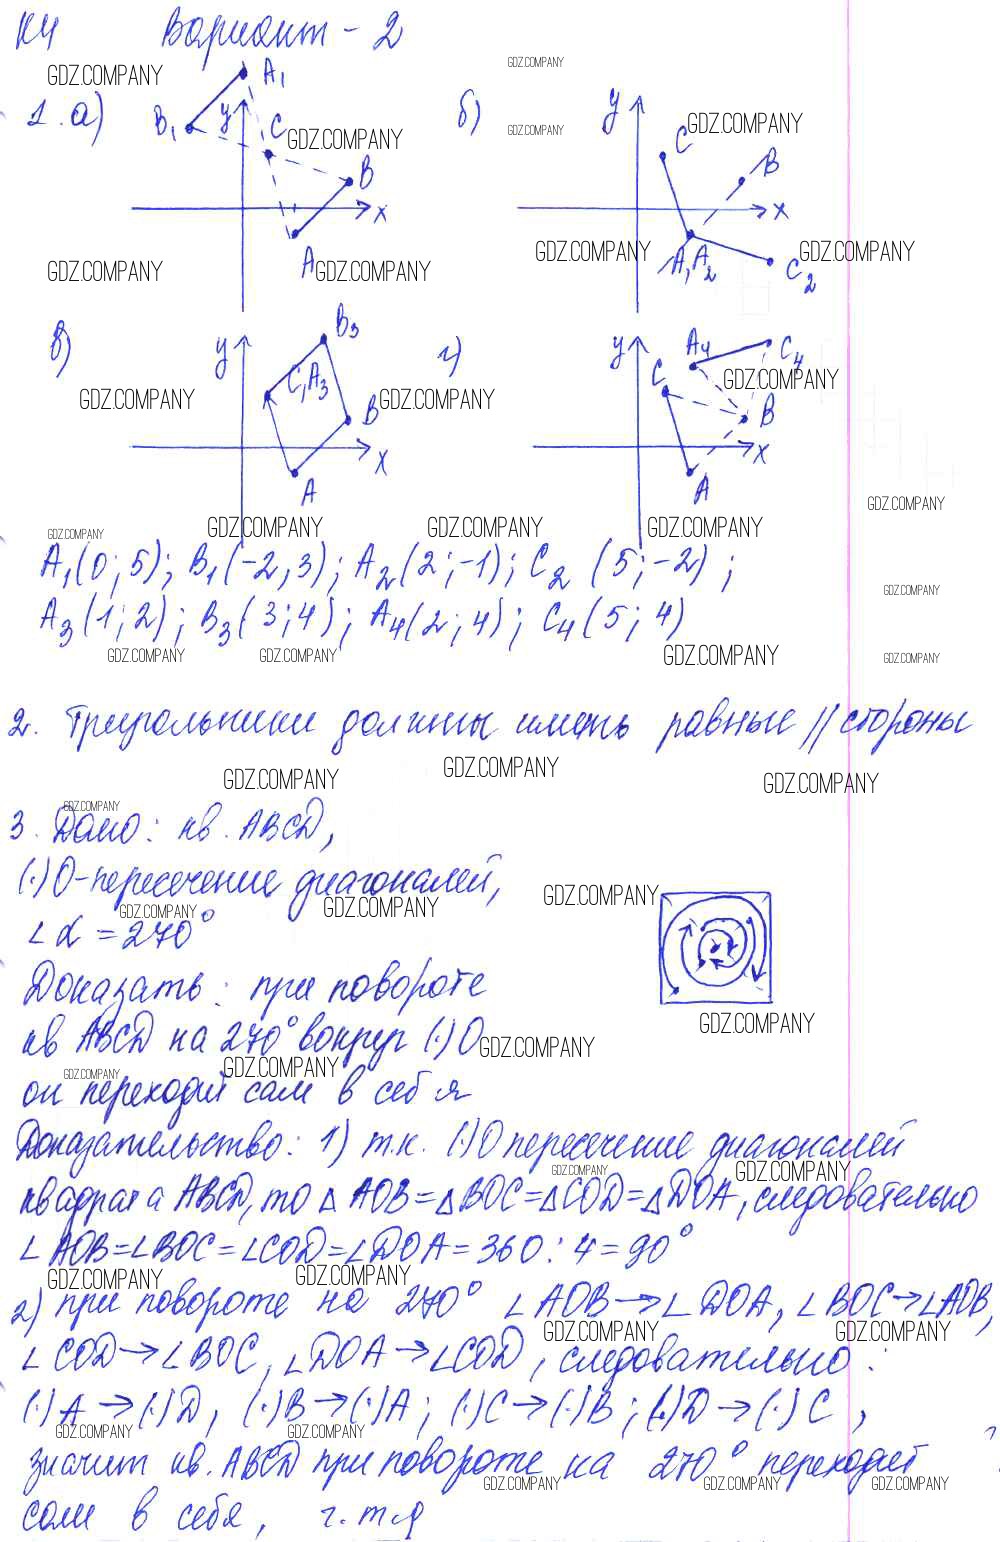 К4 Вариант - 2
1. а) B₁ y A₁ C B x A
б) y C B x A, A₂ C₂
в) y B₃ C, A₃ B x A
г) y A₄ C₄ C B x A
A₁(0; 5); B₁(-2; 3); A₂(2; -1); C₂ (5; -2);
A₃(1; 2); B₃(3; 4); A₄(2; 4); C₄(5; 4)
2. Треугольники должны иметь равные // стороны
3. Дано: кв. ABCD,
(·) O-пересечение диагоналей,
∠α = 270°
Доказать: при повороте
кв ABCD на 270° вокруг (·) O
он переходит сам в себя
Доказательство: 1) т.к. (·) O пересечение диагоналей
квадрата ABCD, то △ AOB = △ BOC = △ COD = △ DOA, следовательно
∠ AOB = ∠ BOC = ∠ COD = ∠ DOA = 360 : 4 = 90°
2) при повороте на 270° ∠ AOB → ∠ DOA, ∠ BOC → ∠ AOB,
∠ COD → ∠ BOC, ∠ DOA → ∠ COD, следовательно:
(·) A → (·) D, (·) B → (·) A; (·) C → (·) B; (·) D → (·) C,
значит кв. ABCD при повороте на 270° переходит
сам в себя, ч.т.д
GDZ.COMPANY